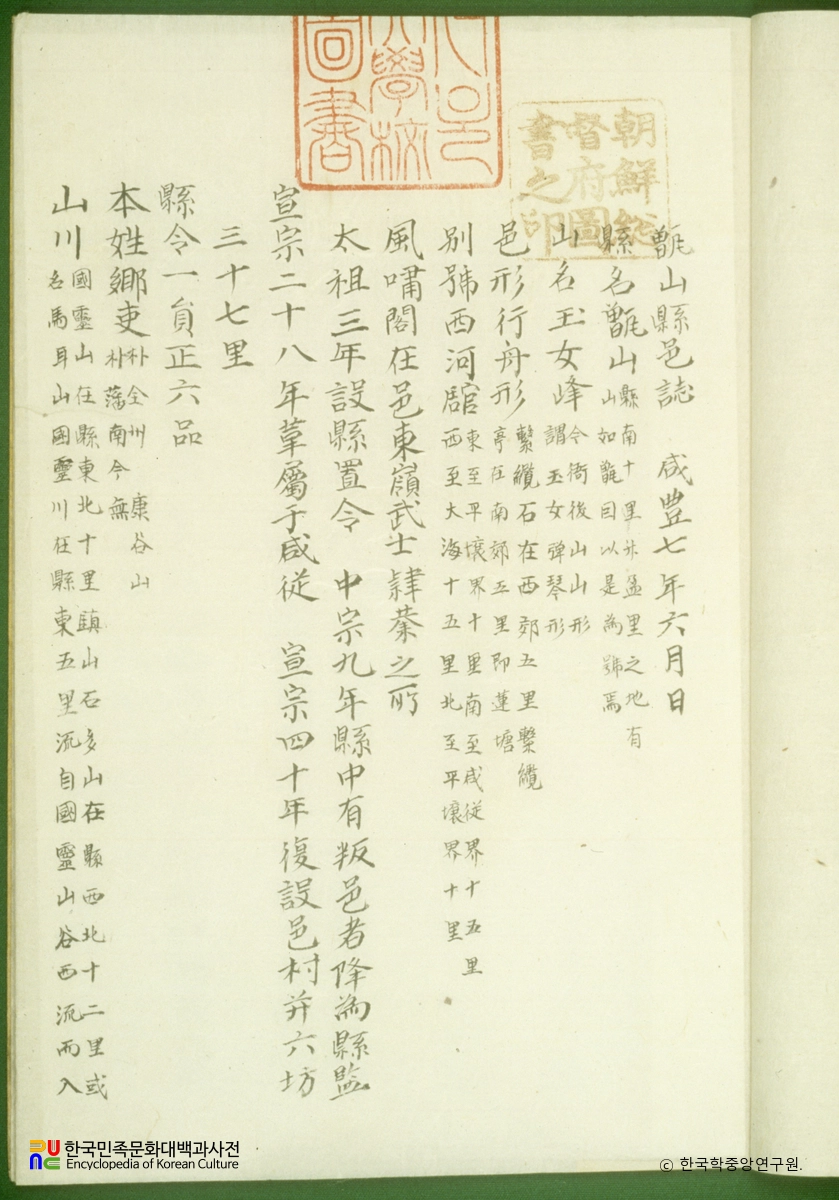 甑山縣邑誌 咸豊七年六月日
縣名甑山 縣南十里 盃里之地有
山如甑因以是為號焉
山名玉女峰 今衙後山山形
謂玉女彈琴形
邑形行舟形 繫纜石在西郊五里繫纜
亭在南郊五里即蓮塘
別號西河館 東至平壤界十里南至咸從界十五里
西至大海十五里北至平壤界十里
風嘯閣在邑東嶺武士肄業之所
太祖三年設縣置令 中宗九年縣中有叛邑者降為縣監
宣宗二十八年革屬于咸從 宣宗四十年復設邑村并六坊
三十七里
縣令一員正六品
本姓鄉吏 朴全州 康谷山
朴藩南今無
山川 國靈山在縣東北十里鎮山石多山在縣西北十二里或
名馬耳山國靈川在縣東五里流自國靈山谷西流而入
朝鮮總
督府圖
書之印
大學校
圖書
한국민족문화대백과사전
Encyclopedia of Korean Culture
© 한국학중앙연구원.